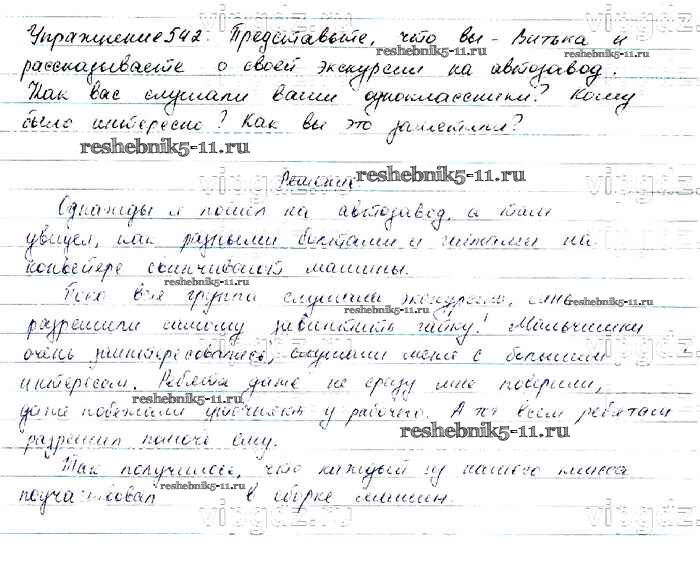 Упражнение 542. Представьте, что вы - Витька и
рассказываете о своей экскурсии на автозавод.
Как вас слушали ваши одноклассники? Кому
было интересно? Как вы это заметили?
Решение
Однажды я пошел на автозавод, а там
увидел, как разными болтами и гайками на
конвейере свинчивают машины.
Пока вся группа слушала экскурсию, мне
разрешили самому завинтить гайку! Мальчишки
очень заинтересовались, слушали меня с большим
интересом. Ребята даже не сразу мне поверили,
даже побежали у рабочего. А тот всем ребятам
разрешил ему.
Так получилось, что каждый из нашего класса
поучаствовал в сборке машин.
reshebnik5-11.ru
reshebnik5-11.ru
reshebnik5-11.ru
reshebnik5-11.ru
reshebnik5-11.ru
reshebnik5-11.ru
reshebnik5-11.ru
reshebnik5-11.ru